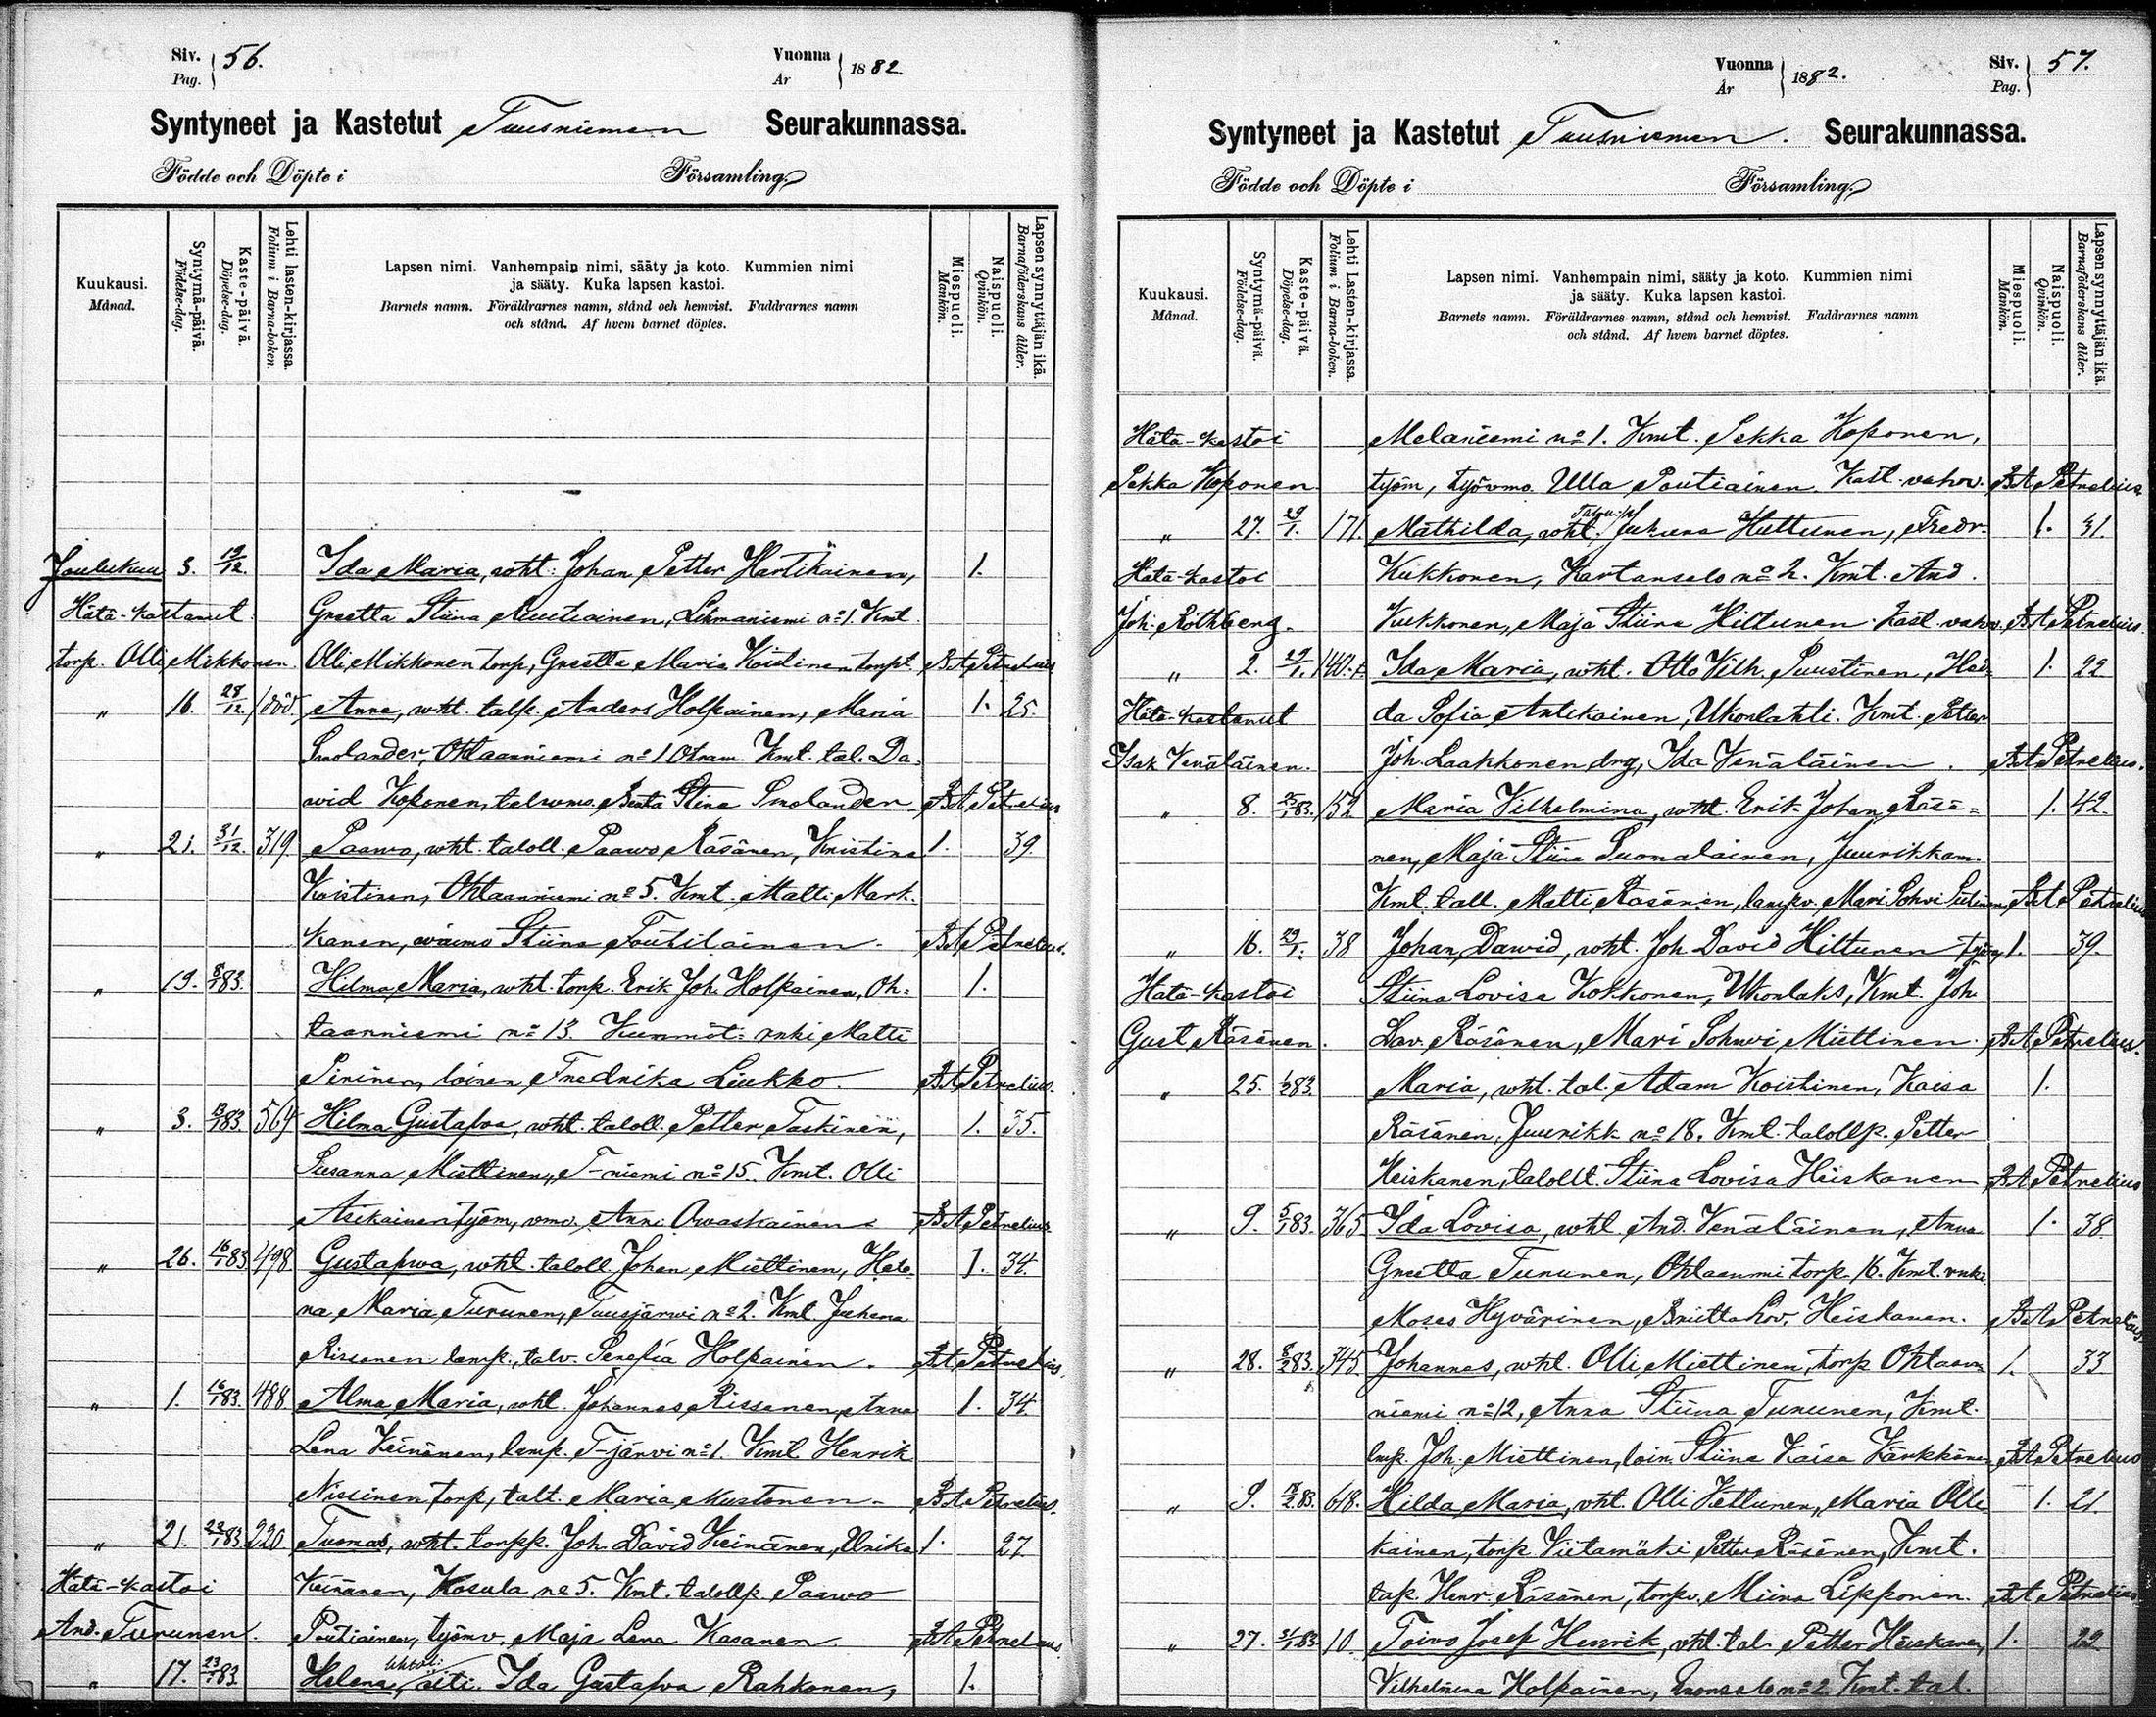 Siv. 56.
Pag.
Vuonna 1882
År
Syntyneet ja Kastetut Tuusniemen Seurakunnassa.
Födde och Döpte i Församling.
Kuukausi. Månad.
Syntymä-päivä. Födelse-dag.
Kaste-päivä. Döpelse-dag.
Lehti lasten-kirjassa. Folium i Barna-boken.
Lapsen nimi. Vanhempain nimi, sääty ja koto. Kummien nimi
ja sääty. Kuka lapsen kastoi.
Barnets namn. Föräldrarnes namn, stånd och hemvist. Faddrarnes namn
och stånd. Af hvem barnet döptes.
Miespuoli. Mankön.
Naispuoli. Qvinkön.
Lapsen synnyttäjän ikä. Barnaföderskans ålder.
Joulukuu 3. 19/12. Ida Maria, wht. Johan Petter Hartikainen, 1.
Hätä-kastanut Greetta Stiina Miettinen, no 1. Kmt.
torp. Olli Mikkonen. Olli Mikkonen torp, Greetta Maria BA Petrelius
" 16. 28/12. död. Anna, wht. talp. Anders Holpainen, Maria 1. 25.
Smolander, Ohtaanniemi no 1 Kmt. tal. Da-
wid Koponen, Stina Smolander BA Petrelius
" 21. 31/12. 319. Paawo, wht. taloll. Paawo Räsänen, Kristina 1. 39.
Koistinen, Ohtaanniemi no 5. Kmt. Matti Mark-
kanen, waimo Stiina BA Petrelius.
" 19. 8/1 83. Hilma Maria, wht. torp. Erik Joh. Holpainen, Oh- 1.
taanniemi no 13. Kummit: Matti
Pirinen, loinen Fredrika Liukko. BA Petrelius.
" 3. 13/1 83. 564 Hilma Gustafva, wht. taloll. Petter Taskinen, 1. 35.
Susanna Miettinen, T-niemi no 15. Kmt. Olli
Asikainen työm, vmo. Anna Owaskainen BA Petrelius
" 26. 16/1 83 498 Gustafwa, wht. taloll. Johan Miettinen, Hele- 1. 34.
na Maria Turunen, Tuusjärwi no 2. Kmt. Juhana
Rissanen lamp., talv. Serafia Holpainen. BA Petrelius.
" 1. 16/1 83. 488 Alma Maria, wht. Johannes Rissanen, Anna 1. 34.
Lena Keinänen, lamp. T-järvi no 1. Kmt. Henrik
Nissinen torp, talt. Maria Mustonen. BA Petrelius.
" 21. 22/1 83 220 Tuomas, wht. torpp. Joh. David Keinänen, Ulrika 1. 27.
Hätä-kastoi Keinänen, Kosula no 5. Kmt. talollp. Paawo
And. Turunen. Poutiainen, työmv. Maja Lena Kasanen. BA Petrelius.
" 17. 23/1 83. Helena, äiti: Ida Gustafva Rahkonen, 1.
Vuonna 1882.
År
Siv. 57.
Pag.
Syntyneet ja Kastetut Tuusniemen. Seurakunnassa.
Födde och Döpte i Församling.
Kuukausi. Månad.
Syntymä-päivä. Födelse-dag.
Kaste-päivä. Döpelse-dag.
Lehti Lasten-kirjassa. Folium i Barna-boken.
Lapsen nimi. Vanhempain nimi, sääty ja koto. Kummien nimi
ja sääty. Kuka lapsen kastoi.
Barnets namn. Föräldrarnes namn, stånd och hemvist. Faddrarnes namn
och stånd. Af hvem barnet döptes.
Miespuoli. Mankön.
Naispuoli. Qvinkön.
Lapsen synnyttäjän ikä. Barnaföderskans ålder.
Hätä-kastoi Melaniemi no 1. Kmt. Pekka Koponen,
Pekka Koponen. työm, työvmo. Ulla Poutiainen. Kast. vahv. BA Petrelius.
" 27. 29/1. 171. Mathilda, wht. Juhana Huttunen, Fredr. 1. 31.
Hätä-kastoi Kukkonen, Kartansalo no 2. Kmt. And.
Joh. Rothberg. Kukkonen, Maja Stiina Hiltunen. Kast. vahv. BA Petrelius.
" 2. 29/1. 140. Ida Maria, wht. Otto Vilh. Puustinen, Hed- 1. 22
Hätä-kastanut da Sofia Antikainen, Ukonlahti. Kmt. Petter
Isak Venäläinen. Joh. Laakkonen drg, Ida Venäläinen. BA Petrelius.
" 8. 25/1 83. 152 Maria Vilhelmina, wht. Erik Johan Räsä- 1. 42.
nen, Maja Stiina Suomalainen, Juurikkam.
Kmt. tall. Matti Räsänen, lampv. Mari Sohvi BA Petrelius
" 16. 29/1. 38 Johan Dawid, wht. Joh. David Hiltunen työm 1. 39.
Hätä-kastoi Stiina Lovisa Kokkonen, Ukonlaks, Kmt. Joh.
Gust. Räsänen. Dav. Räsänen, Mari Sohwi Miettinen. BA Petrelius.
" 25. 1/2 83. Maria, wht. tal. Adam Koistinen, Kaisa 1.
Räsänen, Juurikk. no 18. Kmt. talollp. Petter
Heiskanen, talollt. Stiina Lovisa Heiskanen BA Petrelius
" 9. 5/1 83. 365 Ida Lovisa, wht. And. Venäläinen, Anna 1. 38.
Greetta Turunen, Ohtaanmi torp. 16. Kmt. renki
Moses Hyvärinen, Briitta Lov. Heiskanen. BA Petrelius
" 28. 8/2 83. 345 Johannes, wht. Olli Miettinen, torp Ohtaan- 1. 33
niemi no 12, Anna Stiina Turunen, Kmt.
lmp. Joh. Miettinen, loin. Stiina Kaisa Kärkkäinen BA Petrelius
" 9. 18/2 83. 618. Hilda Maria, wht. Olli Vettunen, Maria Olli- 1. 21.
kainen, torp. Viitamäki Petter Räsänen, Kmt.
tap. Henr. Räsänen, torpv. Miina Lipponen. BA Petrelius
" 27. 31/1 83. 10. Toivo Josef Henrik, wht. tal. Petter Heiskanen, 1. 22
Vilhelmina Holpainen, no 2. Kmt. tal.